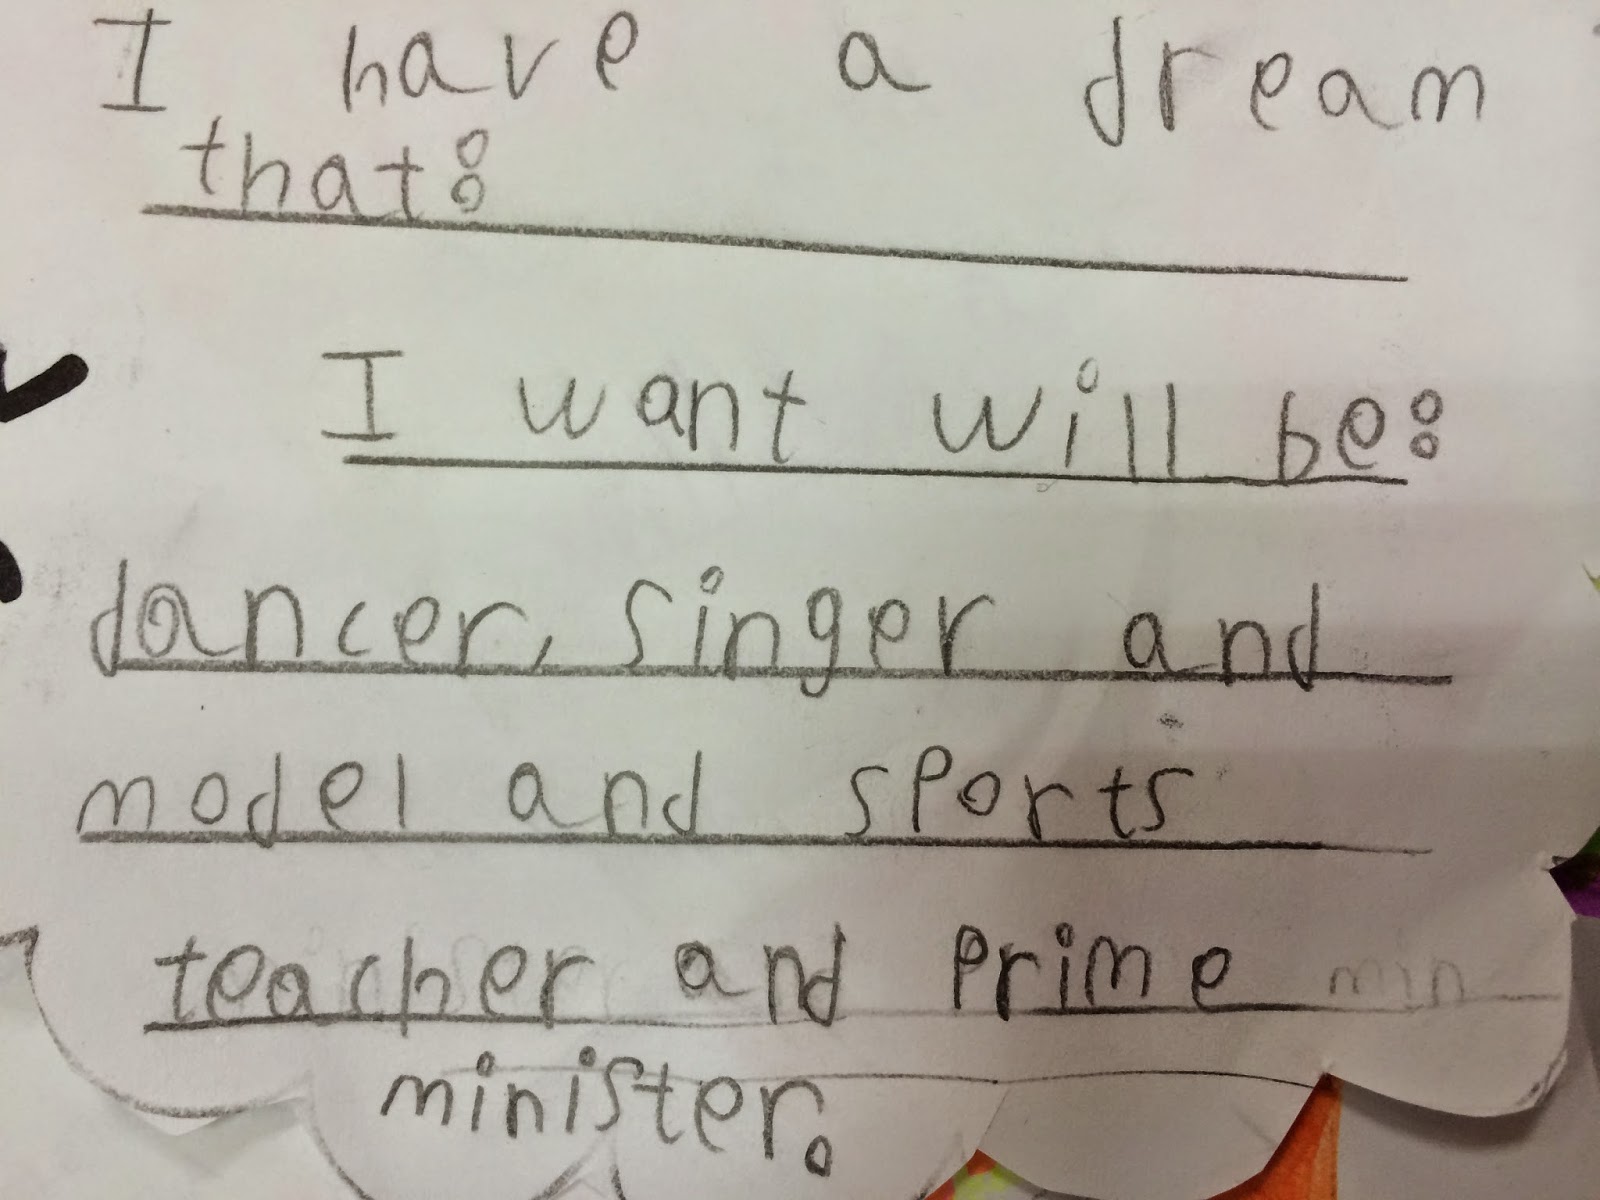 I have a dream
that:
I want will be:
dancer, singer and
model and sports
teacher and prime min
minister.